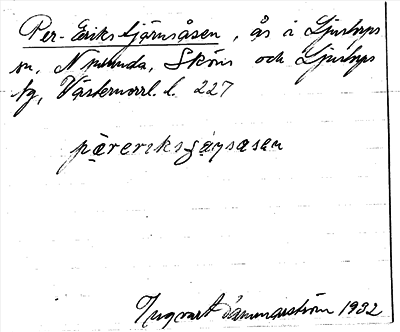 Per-Eriks tjärnsåsen, ås i Ljustorps
sn, N punda, Sköns och Ljustorps
tg, Västernorrl. l. 227
päreriksgänsåsen
Ingvart Dammeström 1932